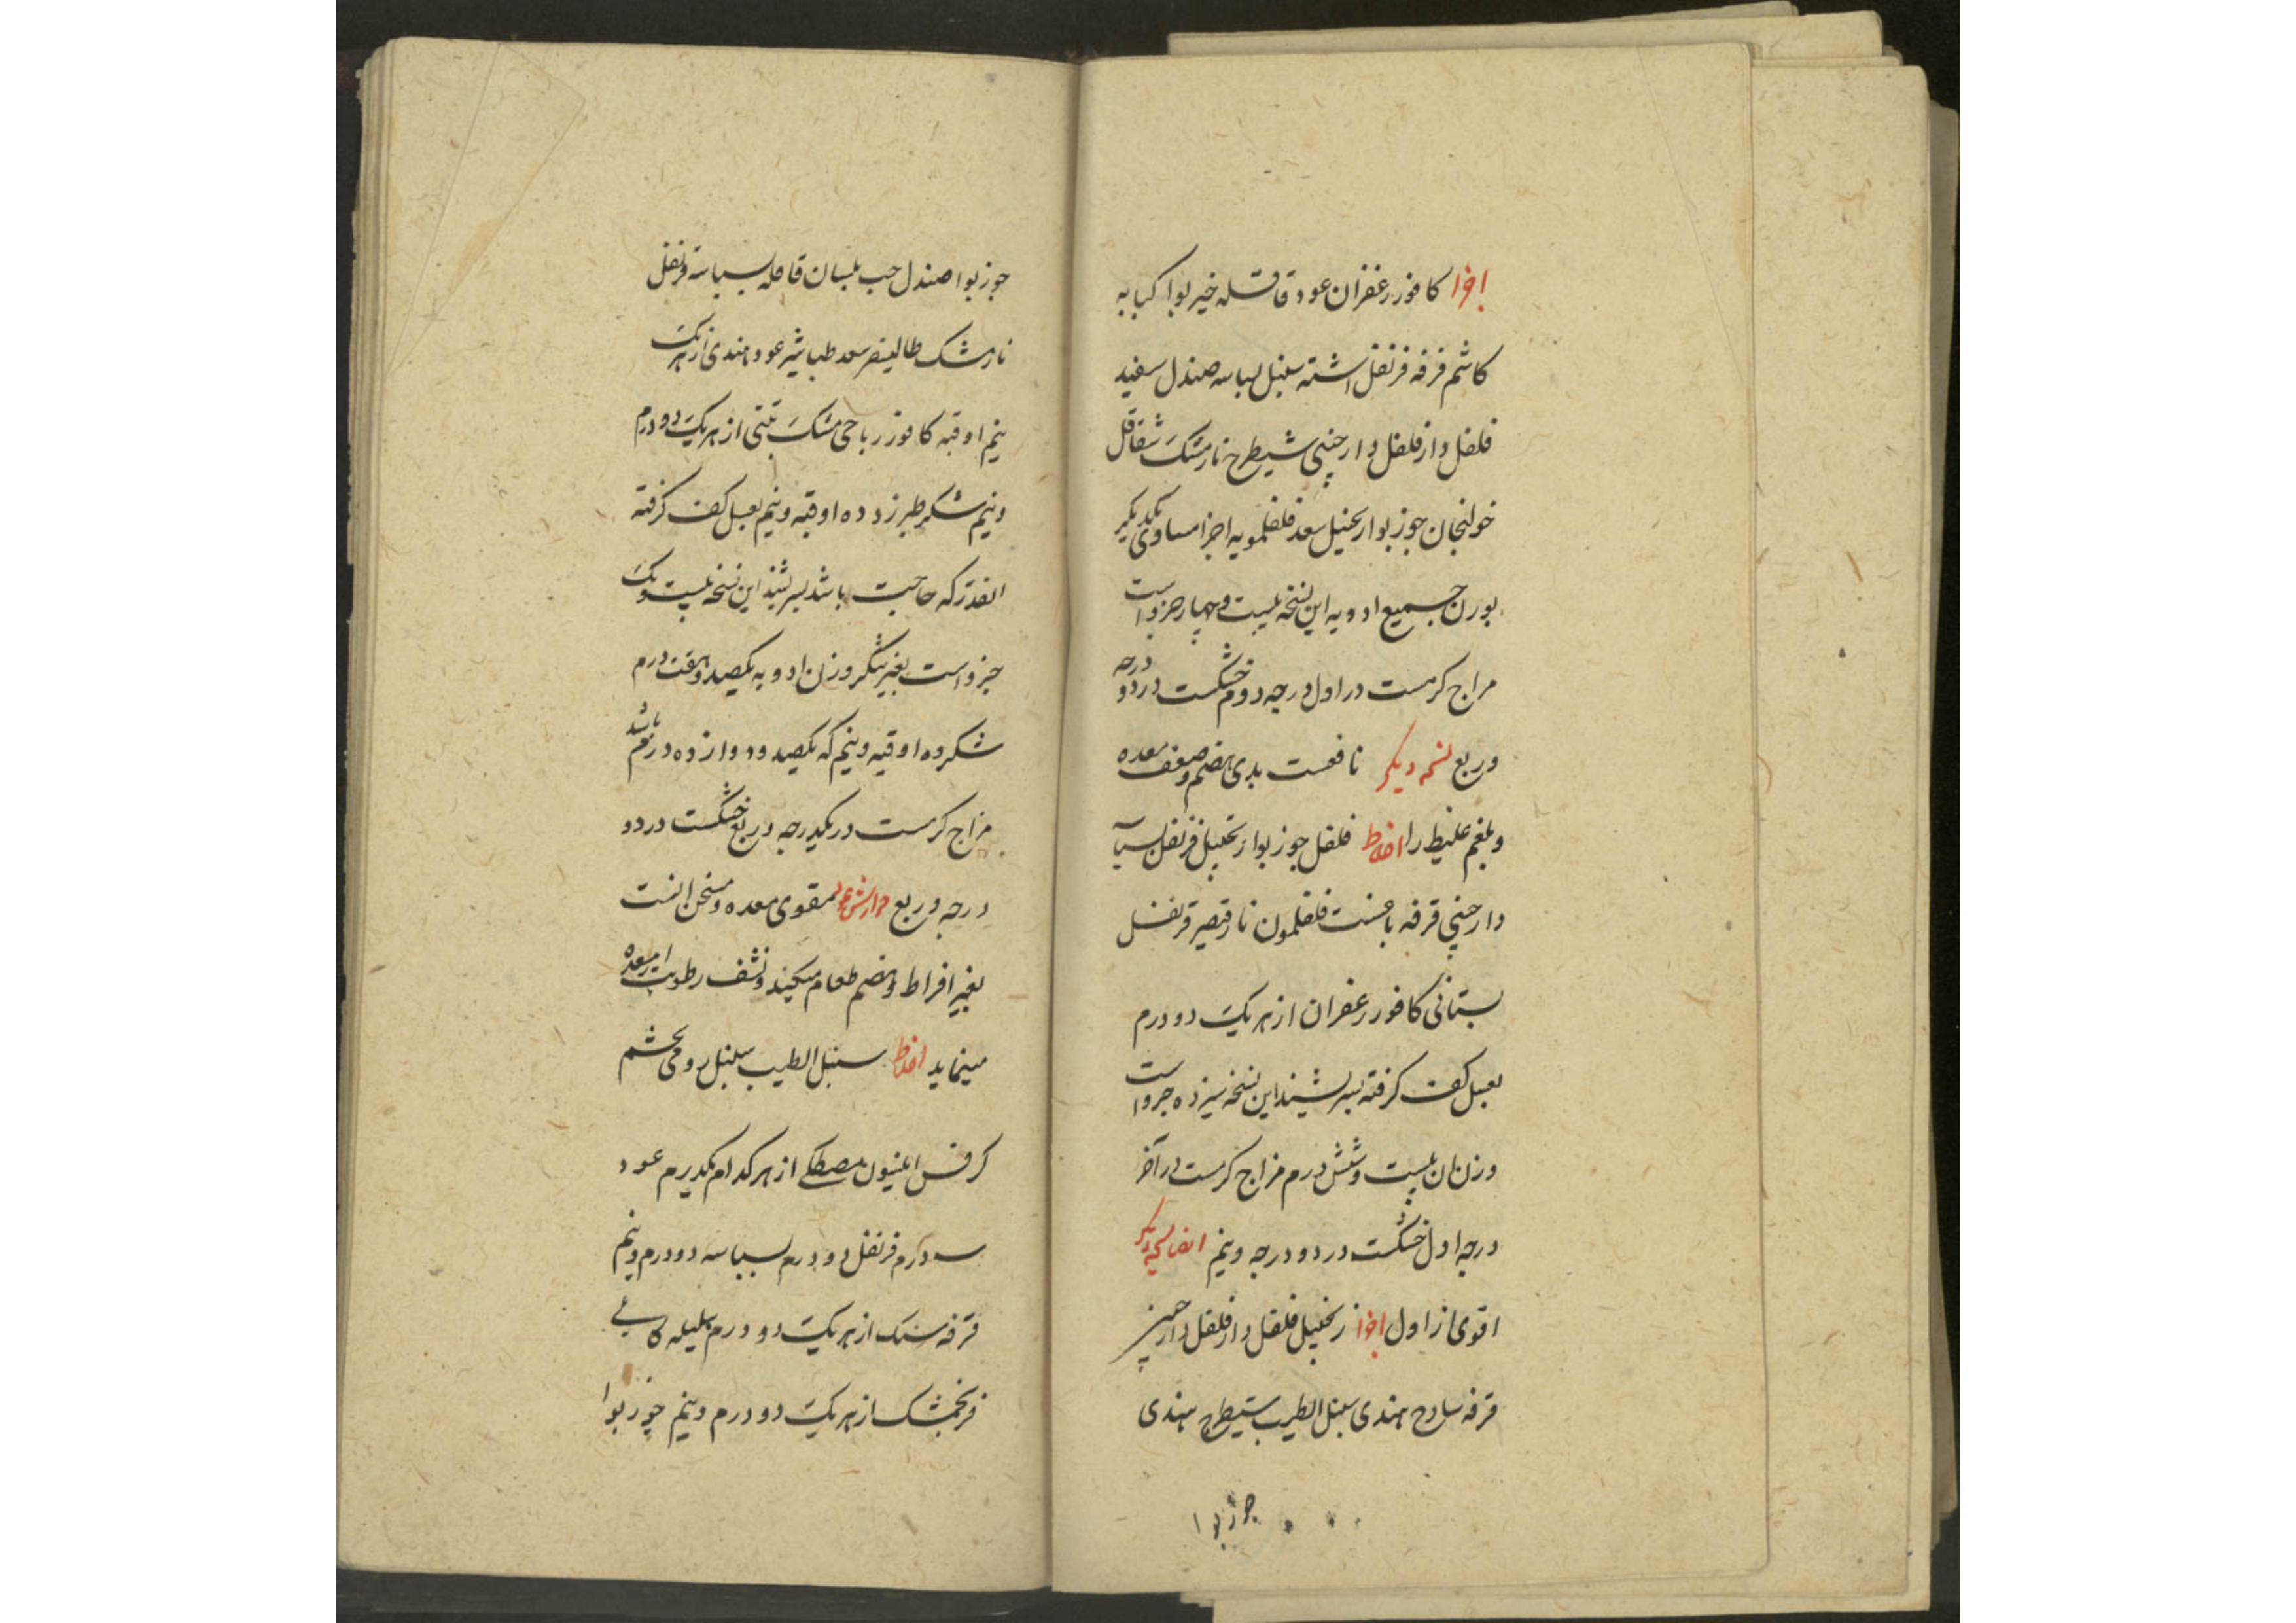 اجزا کافور زعفران عود قاقله خیر بوا کبابه
کاشم قرفه قرنفل اشنه سنبل بسباسه صندل سفید
فلفل دارفلفل دارچینی شیطرج نارمشک شقاقل
خولنجان جوزبوا زنجبیل سعد فلفلمویه اجزا مساوی یکدیگر
بوزن جمیع ادویه این نسخه بیست و چهار جزو است
مزاج کرمست در اول درجه دوم خشکست در دو درجه
و ربع نسخه دیکر نافعست بدی هضم و ضعف معده
و بلغم غلیظ را اخلاط فلفل جوزبوا زنجبیل قرنفل
دارچینی قرفه فلفلمون قرنفل
بستانی کافور زعفران از هر یک دو درم
بعسل کف کرفته بسرشیند این نسخه سیزده جزو است
وزنان بیست و شش درم مزاج کرمست در آخر
درجه اول خشکست در دو درجه و نیم ایضا نسخه دیکر
اقوی از اول اجزا زنجبیل فلفل دارفلفل دارچینی
قرفه سادج هندی سنبل الطیب شیطرج هندی
جوزبوا
جوزبوا صندل حب بلسان قاقله بسباسه قرنفل
نارمشک طالیسفر سعد طباشیر عود هندی از هر یک
نیم اوقیه کافور رباحی مشک تبتی از هر یک دو درم
و نیم شکر طبرزد ده اوقیه و نیم بعسل کف کرفته
انقدر که حاجت باشد بسرشند این نسخه بیست و یک
جزو است بغیر شکر وزن ادویه یکصد و هفت درم
شکر ده اوقیه و نیم که یکصد و دوازده درم باشد
مزاج کرمست در یکدرجه و ربع خشکست در دو
درجه و ربع جوارش عود مقوی معده و مسخن انست
بغیر افراط و هضم طعام میکند و نشف رطوبت از معده
مینماید اخلاط سنبل الطیب سنبل رومی تخم
کرفس انیسون مصطکی از هر کدام یکدرم عود
سه درم قرنفل دو درم بسباسه دو درم و نیم
قرفه سک از هر یک دو درم هلیله کابلی
فرنجمشک از هر یک دو درم و نیم جوزبوا